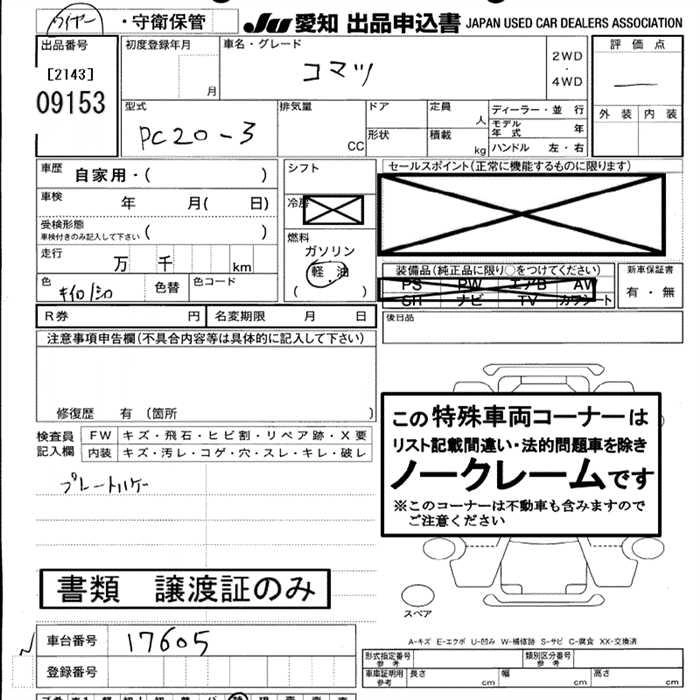 ワイヤー ・守衛保管
JU 愛知 出品申込書 JAPAN USED CAR DEALERS ASSOCIATION
出品番号
[2143]
09153
初度登録年月
月
車名・グレード
コマツ
2WD
・
4WD
評価点
外装 内装
型式
PC20-3
排気量
CC
ドア
形状
定員
人
積載
kg
ディーラー・並 行
モデル
年 式 年
ハンドル 左・右
車歴 自家用・( )
車検 年 月( 日)
受検形態
車検付きのみ記入して下さい ( )
走行
万 千 km
色
キイロ/シロ
色替
色コード
シフト
冷房
燃料
ガソリン
軽 油
( . )
セールスポイント(正常に機能するものに限ります)
装備品(純正品に限り○をつけてください)
PS PW エアB AW
SR ナビ TV カワシート
新車保証書
有・無
R券 円
名変期限 月 日
後日品
注意事項申告欄(不具合内容等は具体的に記入して下さい)
修復歴 有 (箇所 )
検査員
記入欄
FW キズ・飛石・ヒビ割・リペア跡・X要
内装 キズ・汚レ・コゲ・穴・スレ・キレ・破レ
プレートハケー
この特殊車両コーナーは
リスト記載間違い・法的問題車を除き
ノークレームです
※このコーナーは不動車も含みますので
ご注意ください
書類 譲渡証のみ
スペア
A-キズ E-エクボ U-凹み W-補修跡 S-サビ C-腐食 XX-交換済
車台番号 17605
登録番号
形式指定番号
参考
類別区分番号
参考
車庫証明用
参考
長さ 幅 高さ